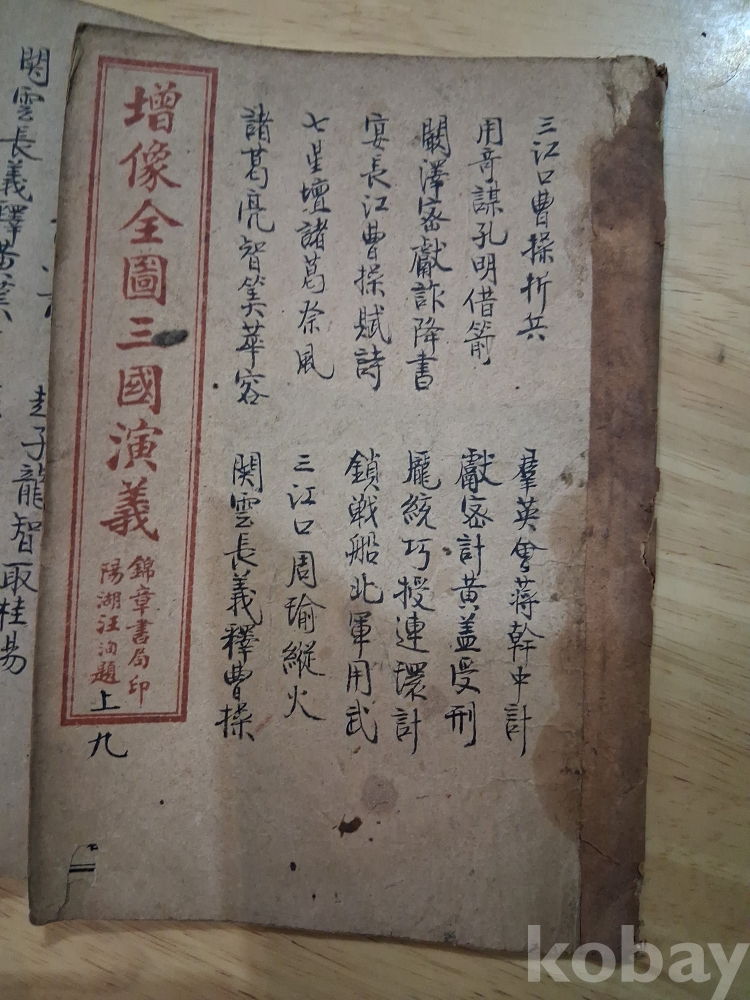 三江口曹操折兵
羣英會蒋幹中計
用奇謀孔明借箭
獻密計黄盖受刑
闞澤密獻詐降書
龐統巧授連環計
宴長江曹操賦詩
鎖戦船北軍用武
七星壇諸葛祭風
三江口周瑜縦火
諸葛亮智筭華容
関雲長義釋曹操
增像全圖三國演義
錦章書局印
陽湖汪洵題
上
九
関雲長義釋曹
趙子龍智取桂陽
kobay